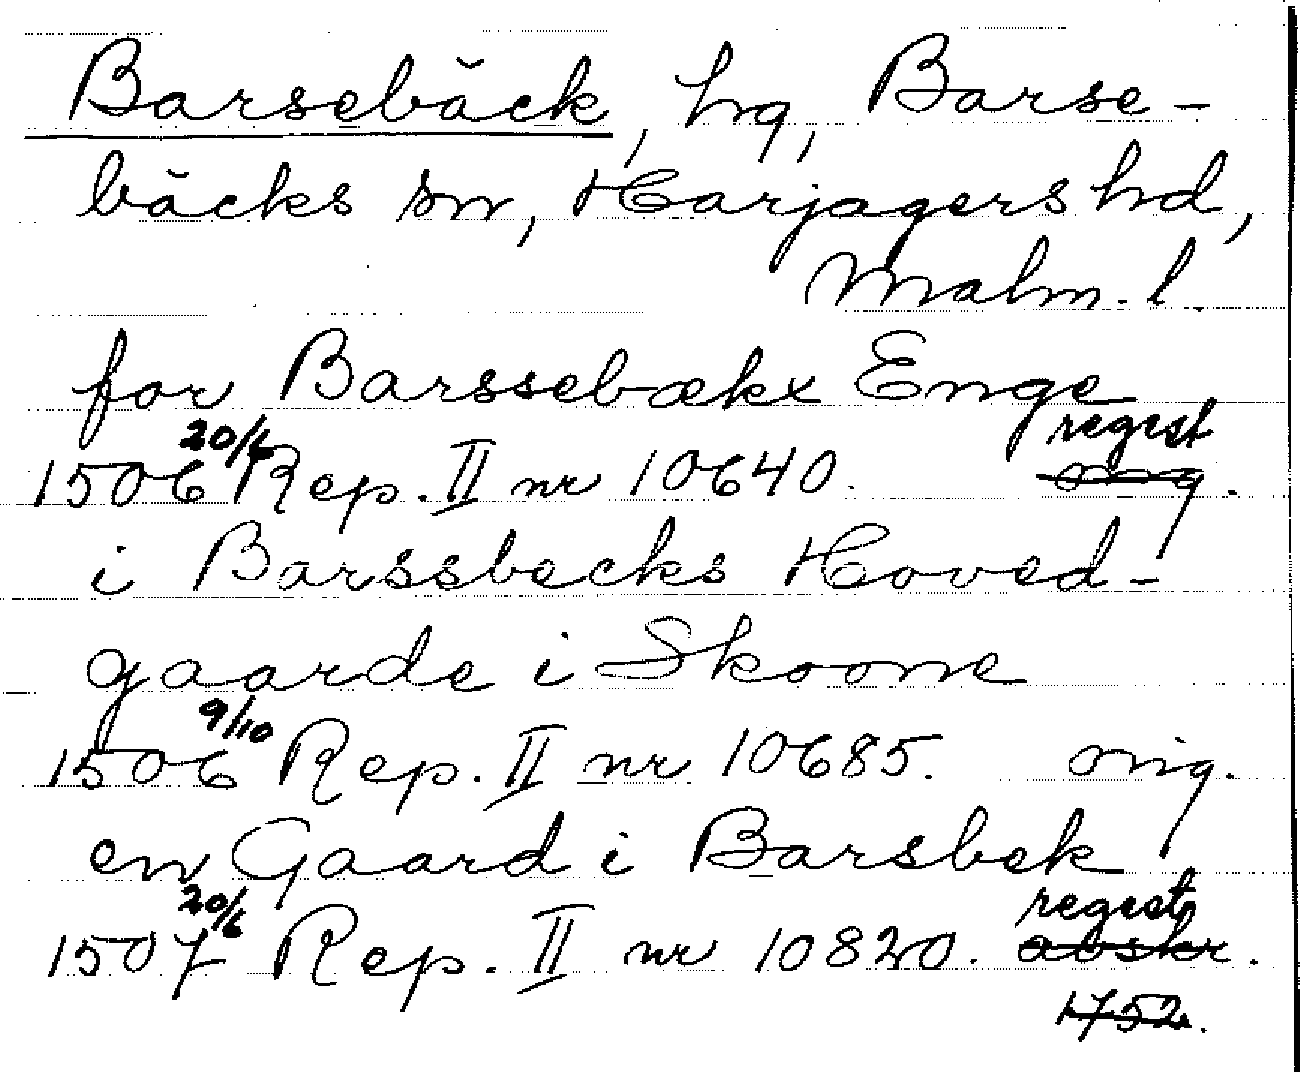 Barsebäck, hg, Barse-
bäcks sn, Harjagers hd,
Malm. l.
for Barssebækx Enge
1506 20/6 Rep. II nr 10640. regest orig.
i Barssbecks Hoved-
gaarde i Skoone
1506 9/10 Rep. II nr 10685. orig.
en Gaard i Barsbek
1507 20/6 Rep. II nr 10820. regest avskr.
1752.